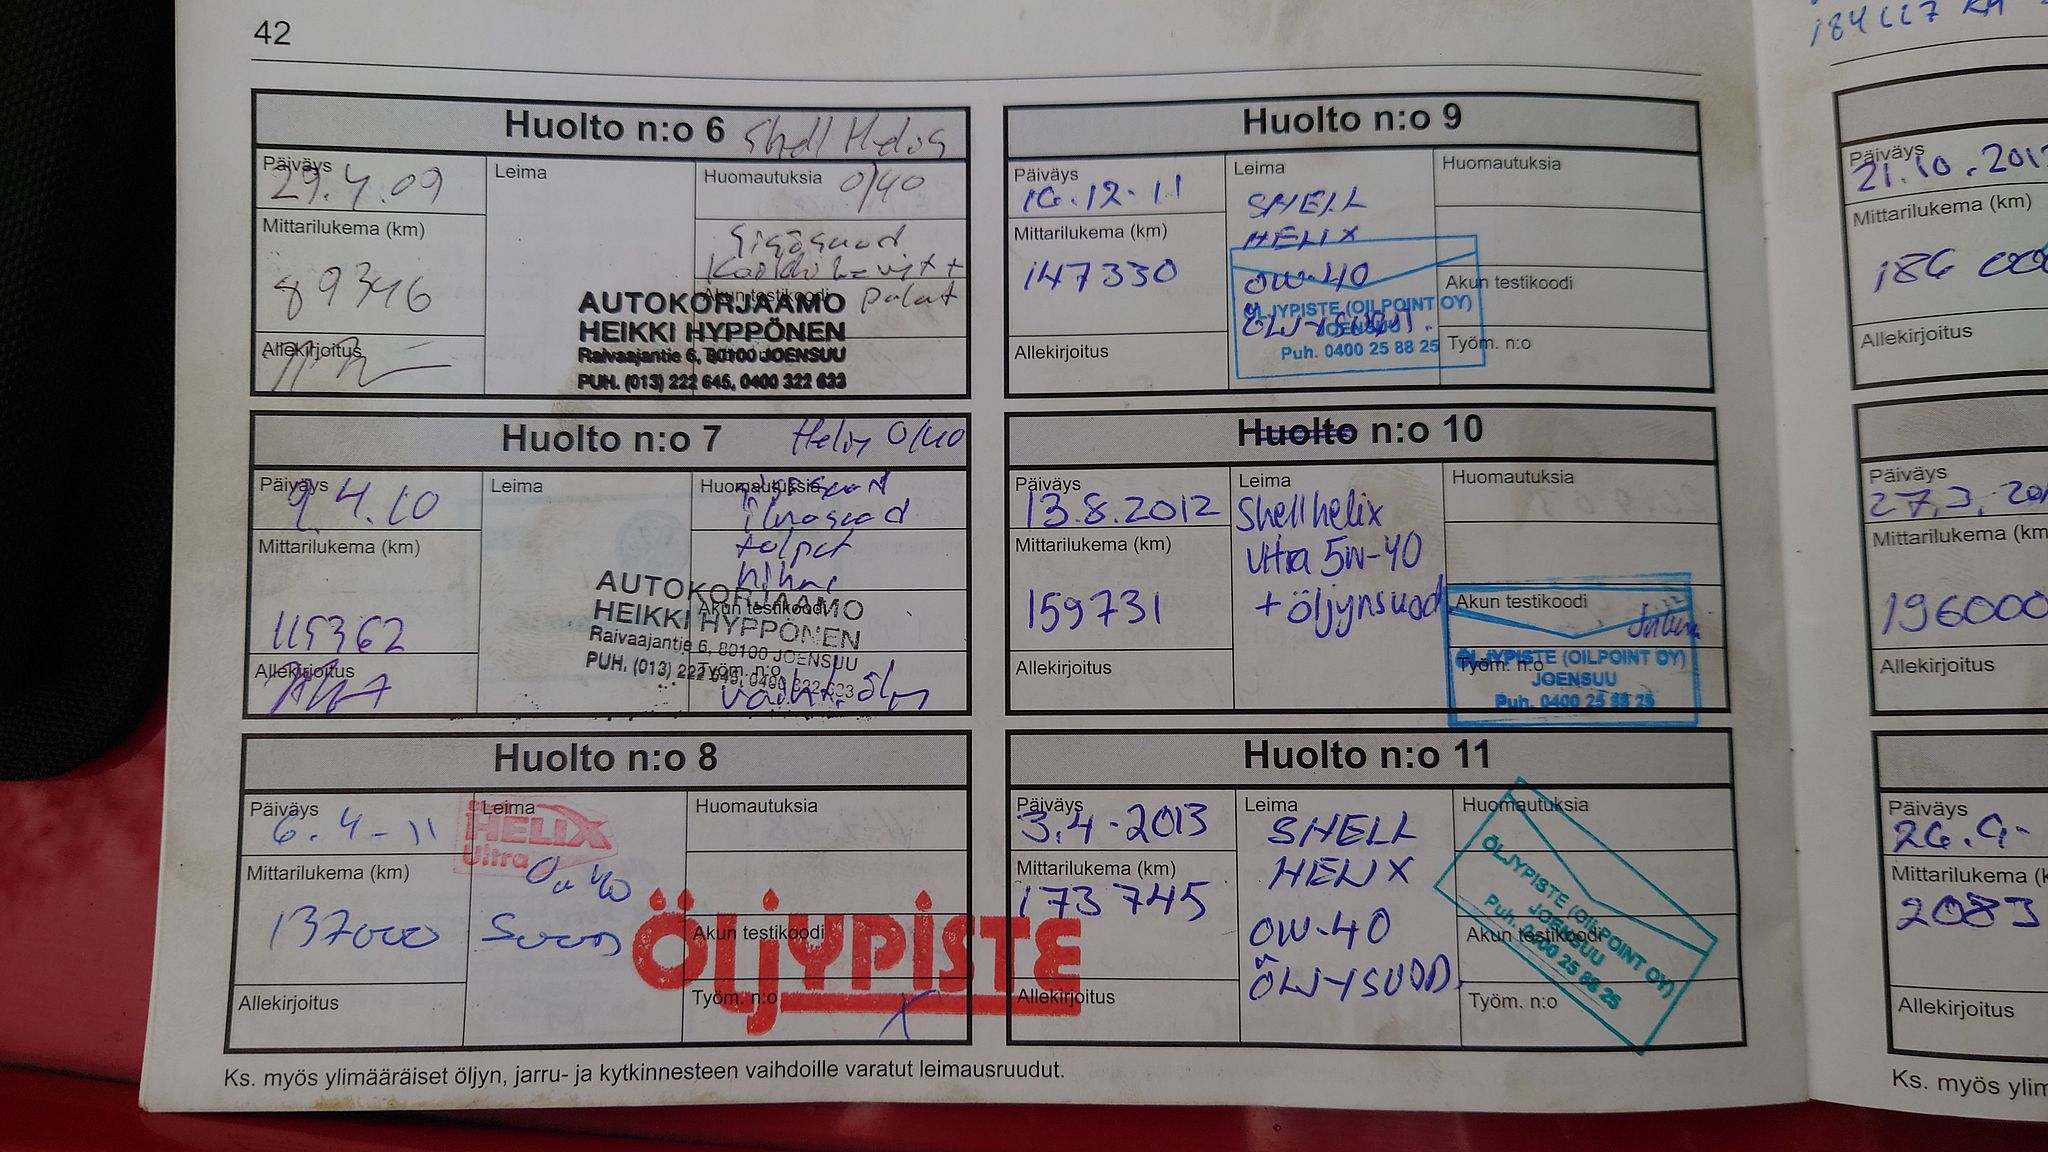 42
Huolto n:o 6 Shell Helix
Päiväys
29.4.09
Leima
Huomautuksia 0/40
Mittarilukema (km)
89346
Allekirjoitus
Akun testikoodi
AUTOKORJAAMO
HEIKKI HYPPÖNEN
Raivaajantie 6, 80100 JOENSUU
PUH. (013) 222 645, 0400 322 633
Huolto n:o 7 Helix 0/40
Päiväys
9.4.10
Leima
Huomautuksia
Mittarilukema (km)
115362
Allekirjoitus
Akun testikoodi
Työm. n:o
AUTOKORJAAMO
HEIKKI HYPPÖNEN
Raivaajantie 6, 80100 JOENSUU
PUH. (013) 222 645, 0400 322 633
Huolto n:o 8
Päiväys
6.4-11
Leima
HELIX
Ultra
Huomautuksia
Mittarilukema (km)
137000
Allekirjoitus
Akun testikoodi
Työm. n:o
ÖLJYPISTE
Huolto n:o 9
Päiväys
16.12-11
Leima
SHELL
HELIX
0W-40
ÖLJYSUOD.
Huomautuksia
Mittarilukema (km)
147330
Allekirjoitus
Akun testikoodi
Työm. n:o
ÖLJYPISTE (OILPOINT OY)
JOENSUU
Puh. 0400 25 88 25
Huolto n:o 10
Päiväys
13.8.2012
Leima
Shell helix
Ultra 5w-40
+ öljynsuod
Huomautuksia
Mittarilukema (km)
159731
Allekirjoitus
Akun testikoodi
Työm. n:o
ÖLJYPISTE (OILPOINT OY)
JOENSUU
Puh. 0400 25 88 25
Huolto n:o 11
Päiväys
3.4-2013
Leima
SHELL
HELIX
0W-40
ÖLJYSUOD.
Huomautuksia
Mittarilukema (km)
173745
Allekirjoitus
Akun testikoodi
Työm. n:o
ÖLJYPISTE (OILPOINT OY)
JOENSUU
Puh. 0400 25 88 25
Ks. myös ylimääräiset öljyn, jarru- ja kytkinnesteen vaihdoille varatut leimausruudut.
Päiväys
21.10.201
Mittarilukema (km)
186 000
Allekirjoitus
Päiväys
27.3.20
Mittarilukema (km
196000
Allekirjoitus
Päiväys
26.9-
Mittarilukema (k
2083
Allekirjoitus
Ks. myös ylim